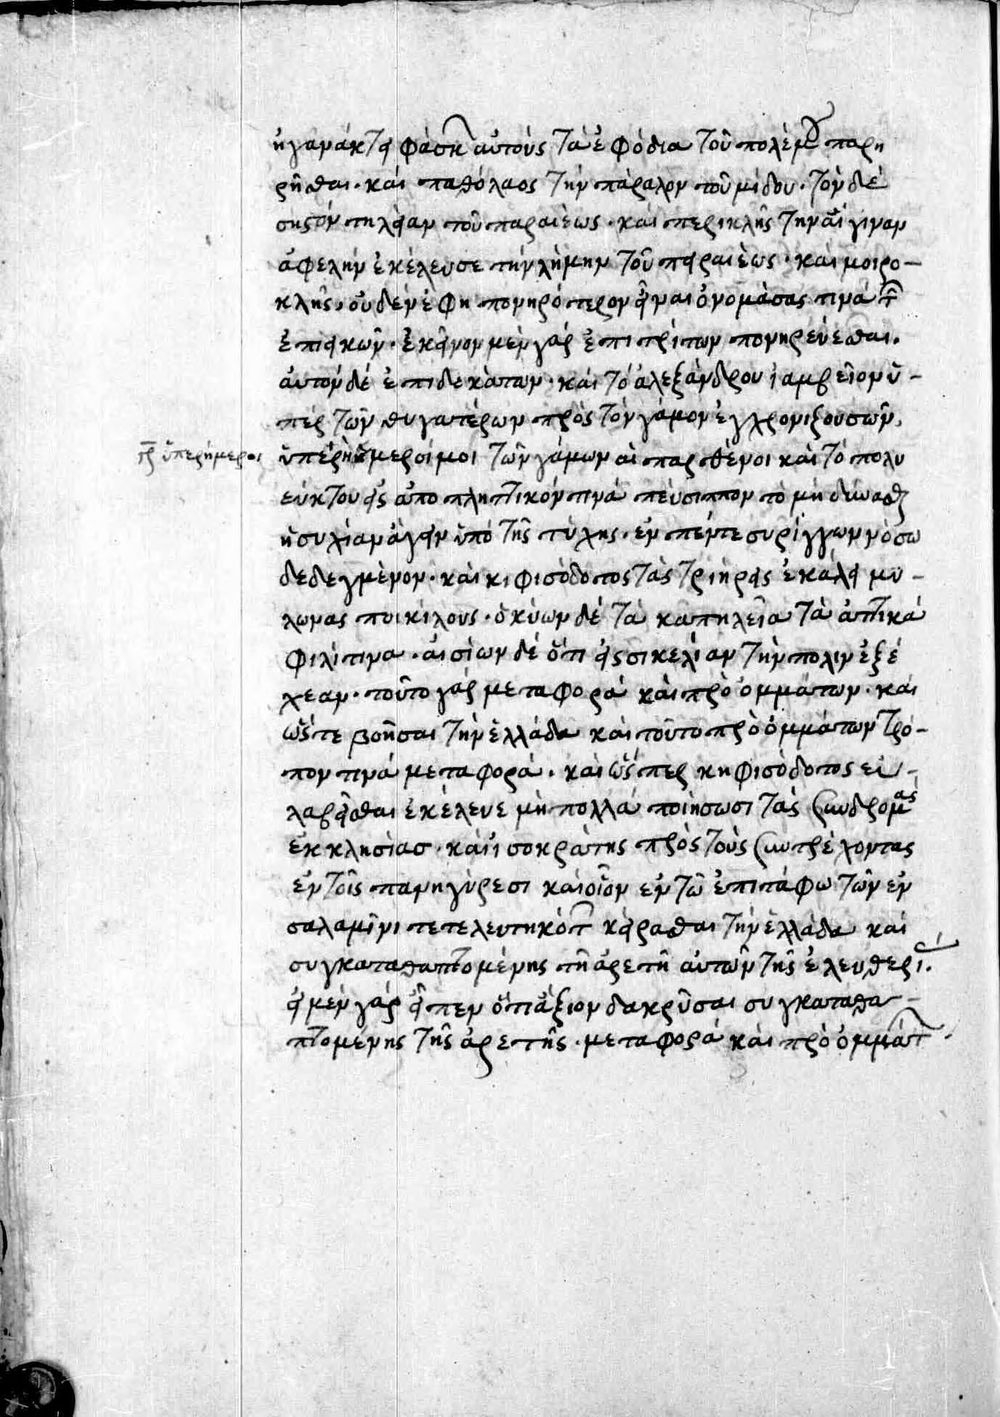 ἠγανάκτει φάσκων αὐτοὺς τὰ ἐφόδια τοῦ πολέμου παρη
ρῆσθαι· καὶ παθόλαος τὴν πάραλον τοῦ μίδου· τὸν δὲ
σηστὸν τηλείαν τοῦ παραιέως· καὶ περικλῆς τὴν αἴγιναν
ἀφελὴν ἐκέλευσε τὴν λήμην τοῦ πειραιέως· καὶ μοιρο-
κλῆς· οὐδὲν ἔφη πονηρότερον εἶναι ὀνομάσας τινὰ τῶν
ἐπιεικῶν· ἐκεῖνον μὲν γὰρ ἐπιτρίτων πονηρεύεσθαι.
αὐτὸν δὲ ἐπιδεκάτων· καὶ τὸ ἀλεξάνδρου ἰαμβεῖον ὑ-
πὲρ τῶν θυγατέρων πρὸς τὸν γάμον ἐγχρονιζουσῶν,
γρ ὑπερήμεροι
ὑπερήμεροι μοι τῶν γάμων αἱ παρθένοι καὶ τὸ πολυ
εύκτου εἰς ἀποπληκτικόν τινὰ πεύσιππον τὸ μὴ δύνασθαι
ἡσυχίαν ἄγειν ὑπὸ τῆς τύχης· ἐν πέντε συρίγγων νόσω
δεδεγμένον· καὶ κιφισόδοτος τὰς τριήρεις ἐκάλει μυ-
λωνας ποικίλους· ὁ κύων δὲ τὰ καπηλεῖα τὰ ἀττικὰ
φιλίτινα· αἰσίων δὲ ὅτι εἰς σικελίαν τὴν πόλιν ἐξέ
χεαν· τοῦτο γὰρ μεταφορὰ καὶ πρὸ ὀμμάτων· καὶ
ὥστε βοῆσαι τὴν ἑλλάδα καὶ τοῦτο πρὸ ὀμμάτων τρό-
πον τινὰ μεταφορά· καὶ ὥσπερ κηφισόδοτος εὐ-
λαβεῖσθαι ἐκέλευε μὴ πολλὰ ποιήσωσι τὰς συνδρομὰς
ἐκκλησίας· καὶ ἰσοκράτης πρὸς τοὺς συντρέχοντας
ἐν τοῖς πανηγύρεσι καὶ οἷον ἐν τῶ ἐπιτάφω τῶν ἐν
σαλαμῖνι τετελευτηκότων κείρασθαι τὴν ἑλλάδα καὶ
συγκαταθαπτομένης τῆ ἀρετῆ αὐτῶν τῆς ἐλευθερίας.
εἰ μὲν γὰρ εἶπεν ὅτι ἄξιον δακρῦσαι συγκαταθα-
πτομένης τῆς ἀρετῆς· μεταφορὰ καὶ πρὸ ὀμμάτων